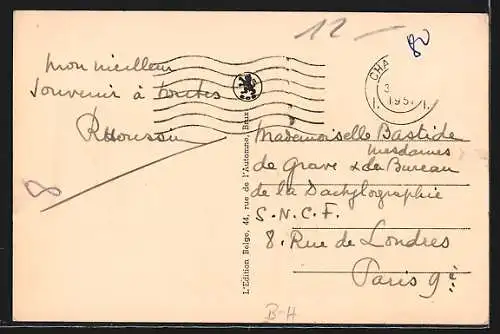 12 -
80
CHA
3
195
I. I.
mon meilleur
souvenir à toutes
8
Mademoiselle Bastide
mesdames
de Grave & de Bureau
de la Dachylographie
S.N.C.F.
8. Rue de Londres
Paris 9e
L'Edition Belge, 44, rue de l'Automne, Brux.
B-H